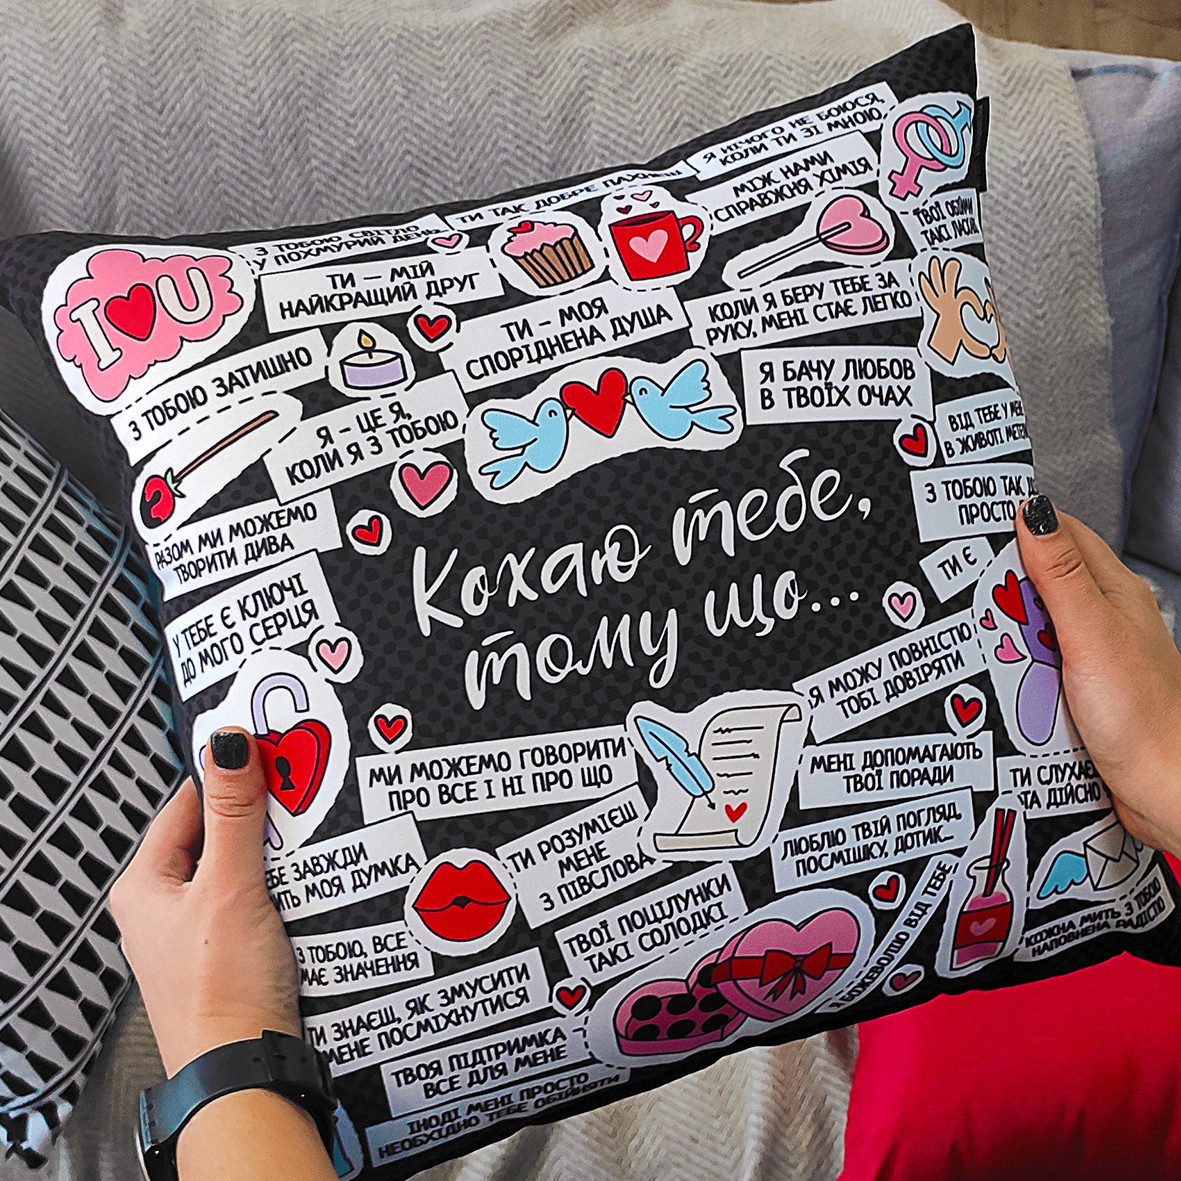 Я НІЧОГО НЕ БОЮСЯ,
КОЛИ ТИ ЗІ МНОЮ
ТИ ТАК ДОБРЕ ПАХНЕШ
МІЖ НАМИ
СПРАВЖНЯ ХІМІЯ
З ТОБОЮ СВІТЛО
У ПОХМУРИЙ ДЕНЬ
ТВОЇ ОБІЙМИ
ТАКІ
I U
ТИ – МІЙ
НАЙКРАЩИЙ ДРУГ
ТИ – МОЯ
СПОРІДНЕНА ДУША
КОЛИ Я БЕРУ ТЕБЕ ЗА
РУКУ, МЕНІ СТАЄ ЛЕГКО
З ТОБОЮ ЗАТИШНО
Я – ЦЕ Я,
КОЛИ Я З ТОБОЮ
Я БАЧУ ЛЮБОВ
В ТВОЇХ ОЧАХ
ВІД ТЕБЕ У МЕНЕ
В ЖИВОТІ
З ТОБОЮ ТАК
ПРОСТО
РАЗОМ МИ МОЖЕМО
ТВОРИТИ ДИВА
Кохаю тебе,
тому що...
ТИ Є
У ТЕБЕ Є КЛЮЧІ
ДО МОГО СЕРЦЯ
Я МОЖУ ПОВНІСТЮ
ТОБІ ДОВІРЯТИ
МИ МОЖЕМО ГОВОРИТИ
ПРО ВСЕ І НІ ПРО ЩО
МЕНІ ДОПОМАГАЮТЬ
ТВОЇ ПОРАДИ
ТИ СЛУХАЄ
ТА ДІЙСНО
ЗАВЖДИ
МОЯ ДУМКА
ТИ РОЗУМІЄШ
МЕНЕ
З ПІВСЛОВА
ЛЮБЛЮ ТВІЙ ПОГЛЯД,
ПОСМІШКУ, ДОТИК...
З ТОБОЮ, ВСЕ
МАЄ ЗНАЧЕННЯ
ТВОЇ ПОЦІЛУНКИ
ТАКІ СОЛОДКІ
Я БОЖЕВОЛІЮ ВІД ТЕБЕ
КОЖНА МИТЬ З ТОБОЮ
НАПОВНЕНА РАДІСТЮ
ТИ ЗНАЄШ, ЯК ЗМУСИТИ
МЕНЕ ПОСМІХНУТИСЯ
ТВОЯ ПІДТРИМКА
ВСЕ ДЛЯ МЕНЕ
ІНОДІ МЕНІ ПРОСТО
НЕОБХІДНО ТЕБЕ ОБІЙНЯТИ